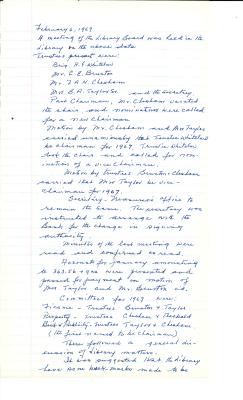 February 6, 1969
A meeting of the Library Board was held in the
Library on the above date.
Trustees present were:
Brig. H. P. Whitelaw
Mr. C. E. Bruston
Mr. J. A. N. Chesham
Mrs. E. A. Taylor and the secretary
Past Chairman, Mr. Chesham vacated
the chair and nominations were called
for a new Chairman.
Motion by Mr. Chesham and Mrs Taylor
carried unanimously that Trustee Whitelaw
be chairman for 1969. Trustee Whitelaw
took the chair and called for nom-
inations of a vice Chairman.
Motion by Trustees Bruston Chesham
carried that Mrs Taylor be vice-
Chairman for 1969.
Secretary-Treasurer's office to
remain the same. The secretary was
instructed to arrange with the
Bank for the change in signing
authority.
Minutes of the last meeting were
read and confirmed as read.
Accounts for January amounting
to 363.56 were presented and
passed for payment on motion of
Mrs Taylor and Mr. Bruston
Committees for 1969 were:
Finance - Trustees Bruston & Taylor
Property - Trustees Chesham &
Book & Publicity. Trustees Taylor & Chesham
(the first named to be chairman)
There followed a general dis-
cussion of Library matters.
It was suggested that the Library
have some book marks made to be